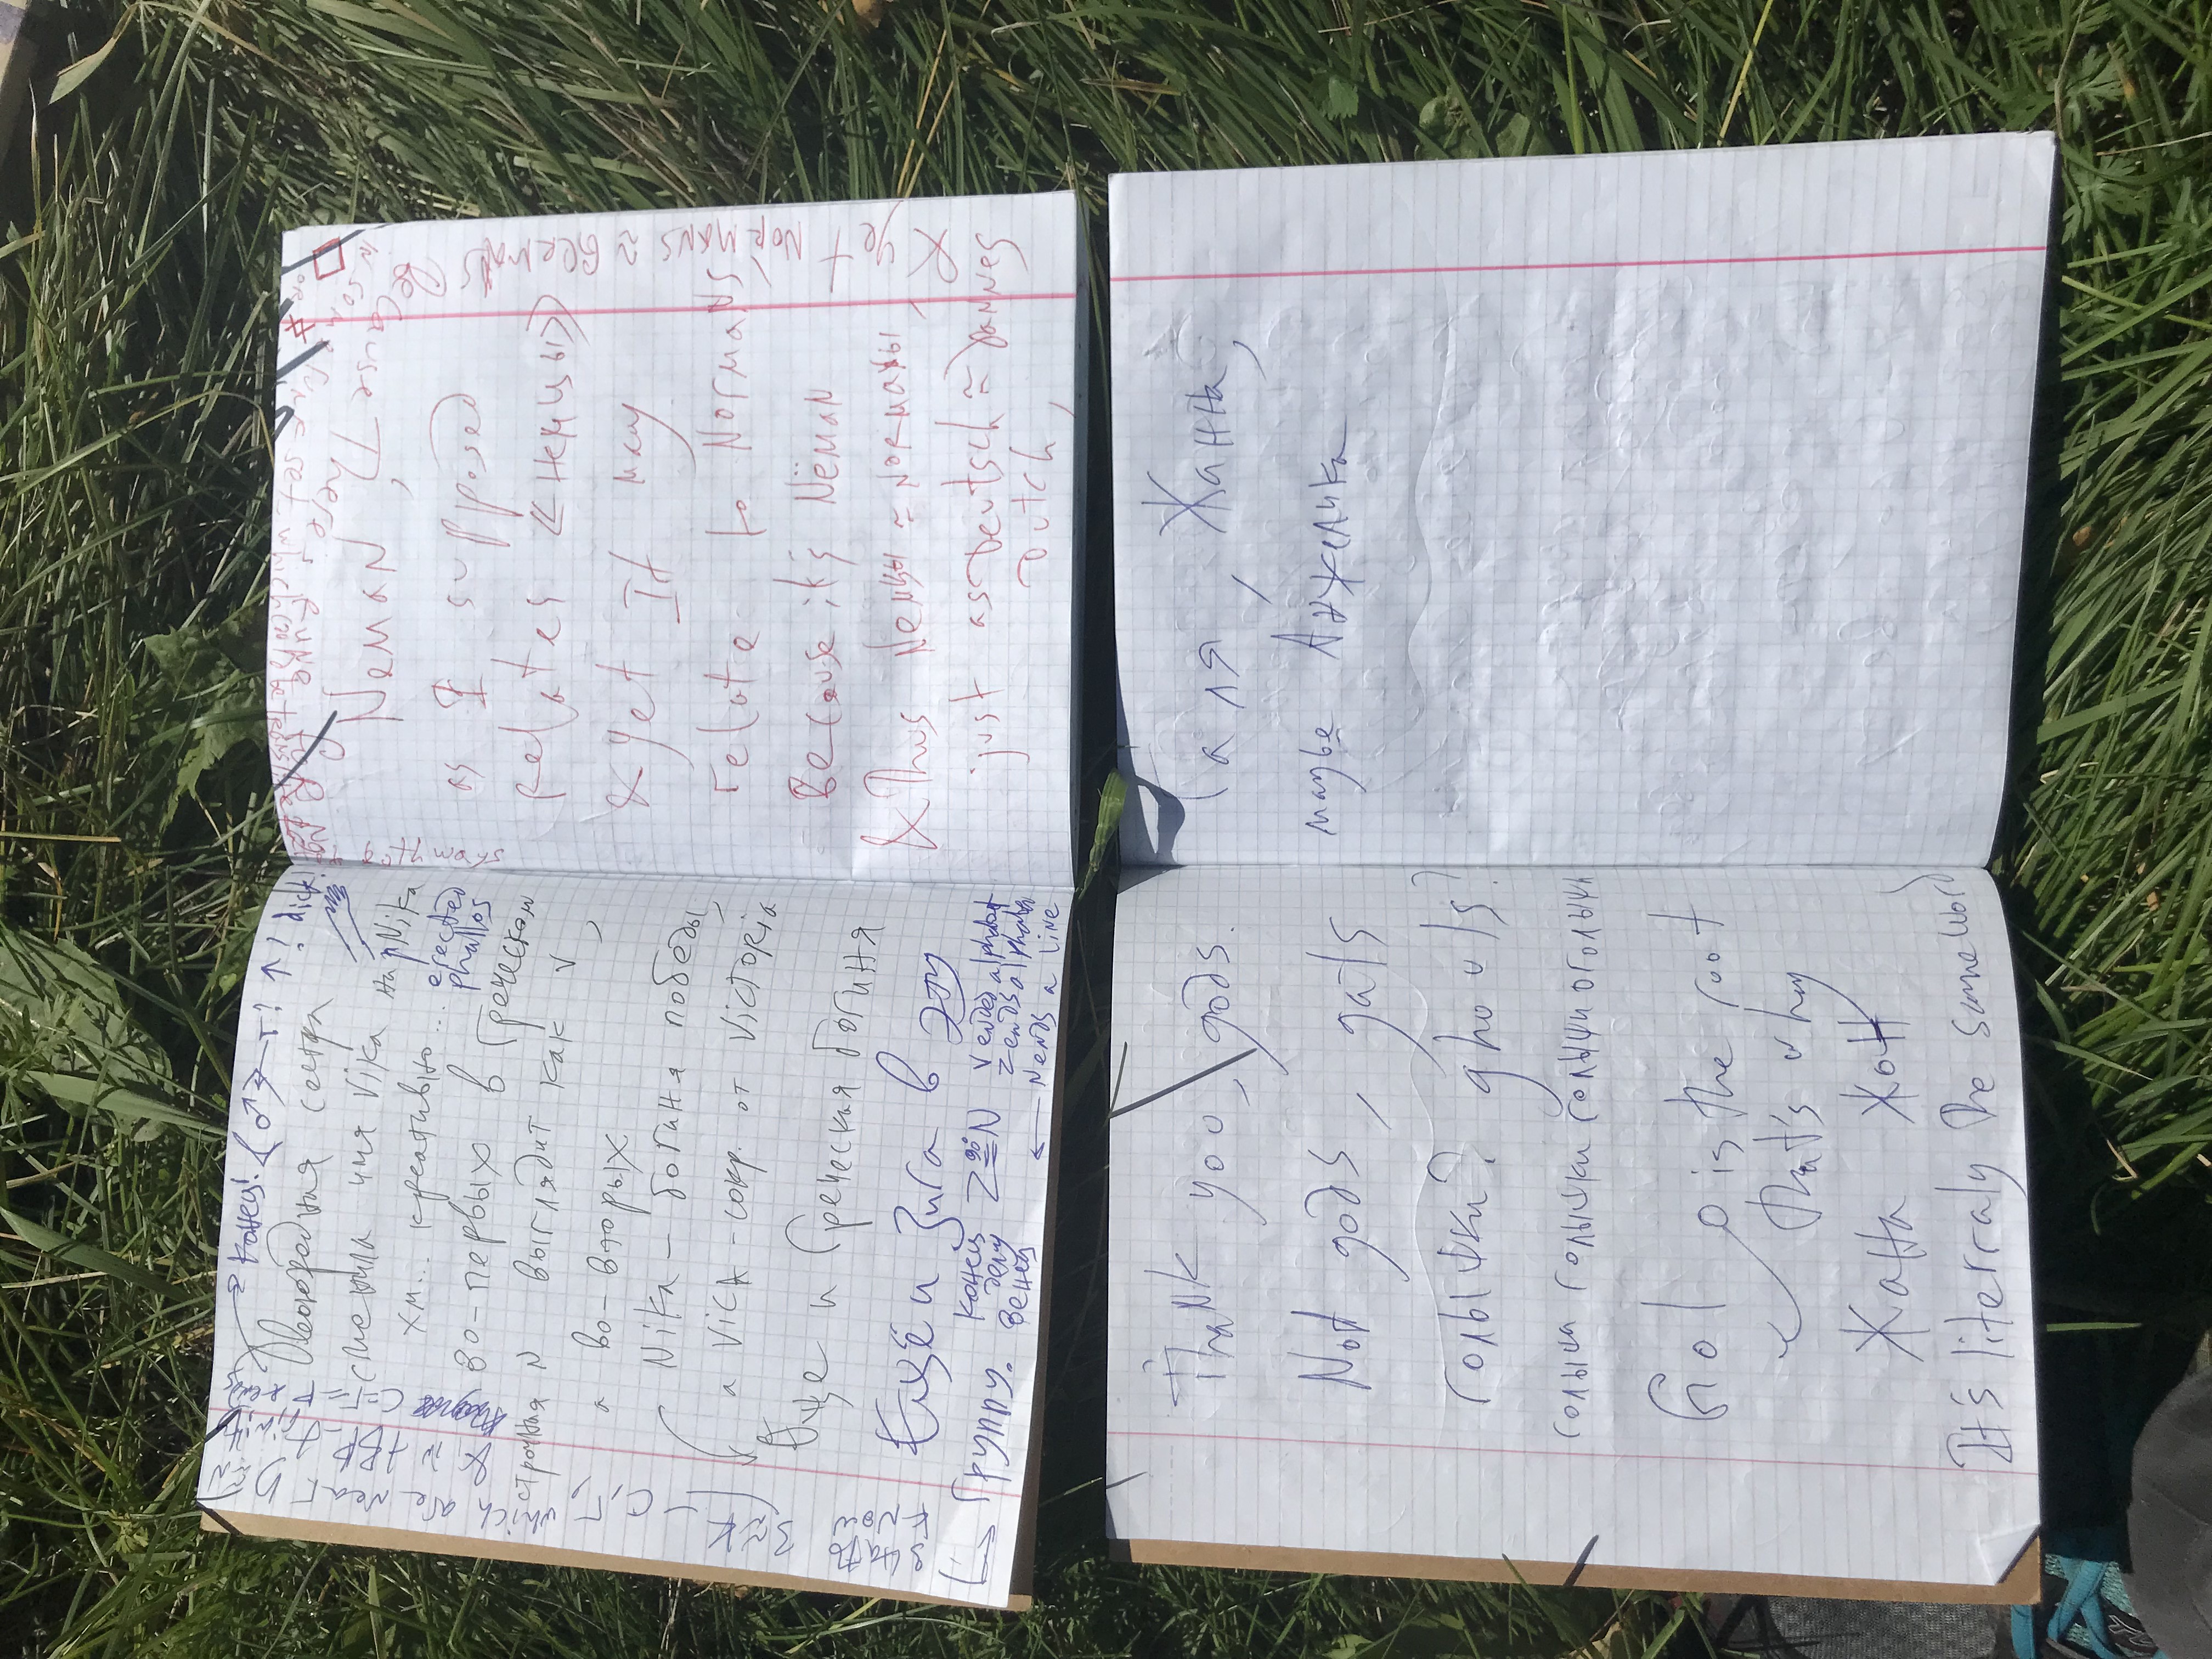 конец! ♂ т? ↑? dick!
Двоюродная сестра
сменила имя Vika на Nika
хм... креативно... erected
phallos
во-первых в Греческом
строчная N выглядит как ν,
а во-вторых
Nika – богиня победы,
а Vica – сокр. от Victoria
Еще и Греческая богиня
Ещё и Зига в эту
Группу.
конец
делу
венец
Z 90° N
V ended alphabet
Z ends alphabet
← N ends a line
знать
know
З≈К – С,Г, which are near Г D
& in
С=Г=
Neman,
as I supposed
relates «немцы»
& yet It may
relate to Normans
Because it's Nëman
& Thus Nемцы ≈ Norманы
just as Deutsch ≈ Dannes
Dutch,
& yet Normans ≈ Germans
Because There's rune
set which to be
both ways
Thank you, gods.
Not gods, gats
голышки? ghouls?
голыши голышки голыши оголыши
Gol o is the root
that's why
Жана Жон
It's literraly The same word
Галя, Жанна,
maybe Анжелика